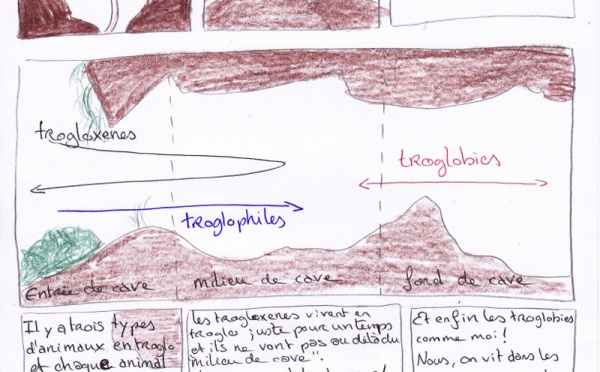 trogloxenes
troglobies
troglophiles
Entrée de cave
milieu de cave
fond de cave
Il y a trois types
d'animaux en troglo
et chaque animal
les trogloxenes vivent en
troglo juste pour un temps
et ils ne vont pas au délà du
milieu de cave".
Et enfin les troglobies
comme moi!
Nous, on vit dans les